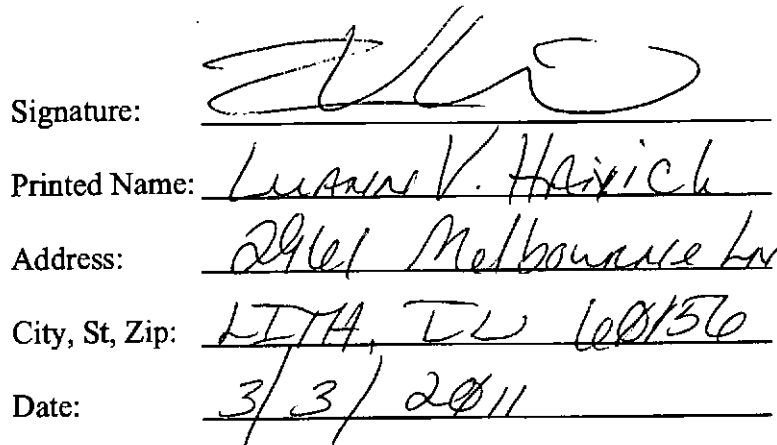 Signature:
Printed Name: LuAnn V. Hairich
Address: 2961 Melbourne Ln
City, St, Zip: LITH, IL 60156
Date: 3/3/2011